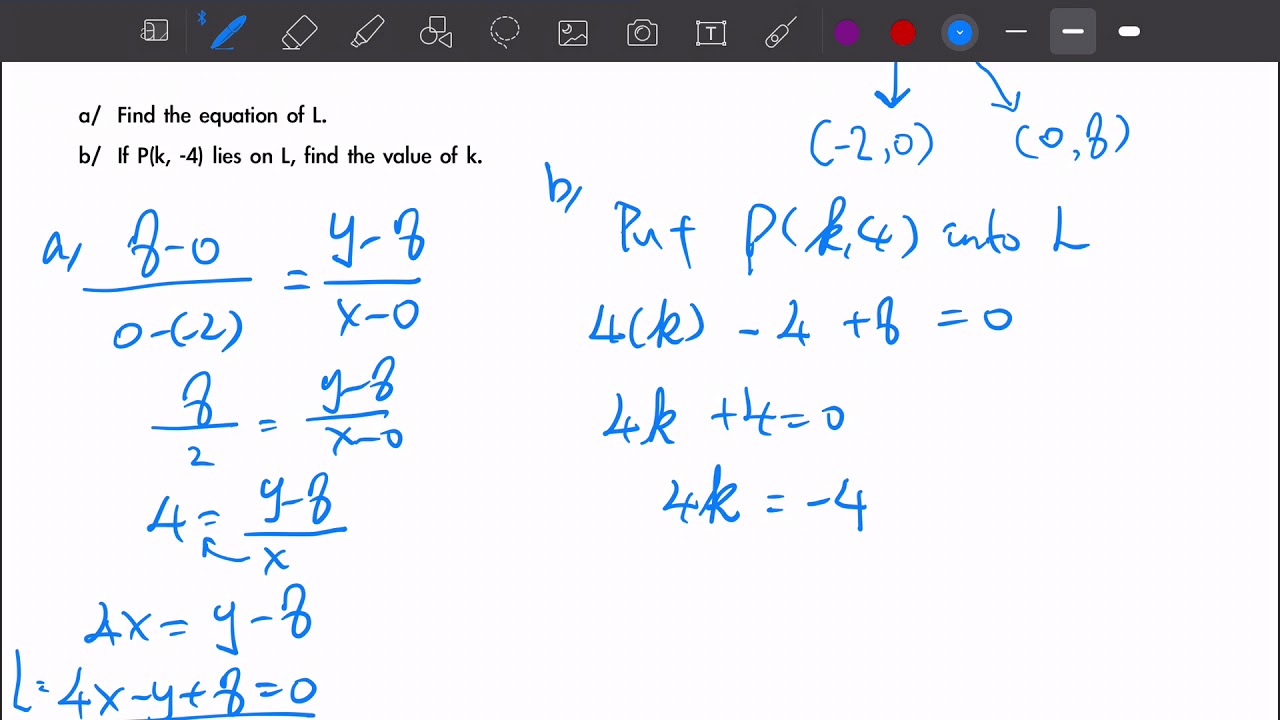 a/ Find the equation of L.
b/ If P(k, -4) lies on L, find the value of k.
(-2,0) (0,8)
a, 8-0 / 0-(-2) = y-8 / x-0
8 / 2 = y-8 / x-0
4 = y-8 / x
4x = y-8
L: 4x-y+8=0
b, Put P(k,4) into L
4(k) - 4 + 8 = 0
4k + 4 = 0
4k = -4
T